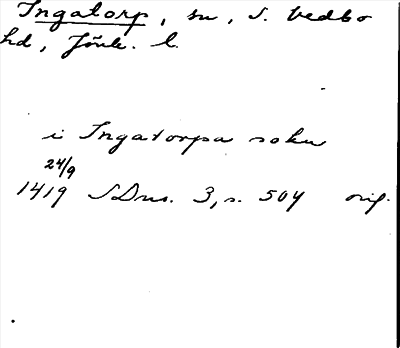 Ingatorp, sn, S. Vedbo
hd, Jönk. l.
i Ingatorpa sokn
24/9
1419 SDns. 3, s. 504 orig.